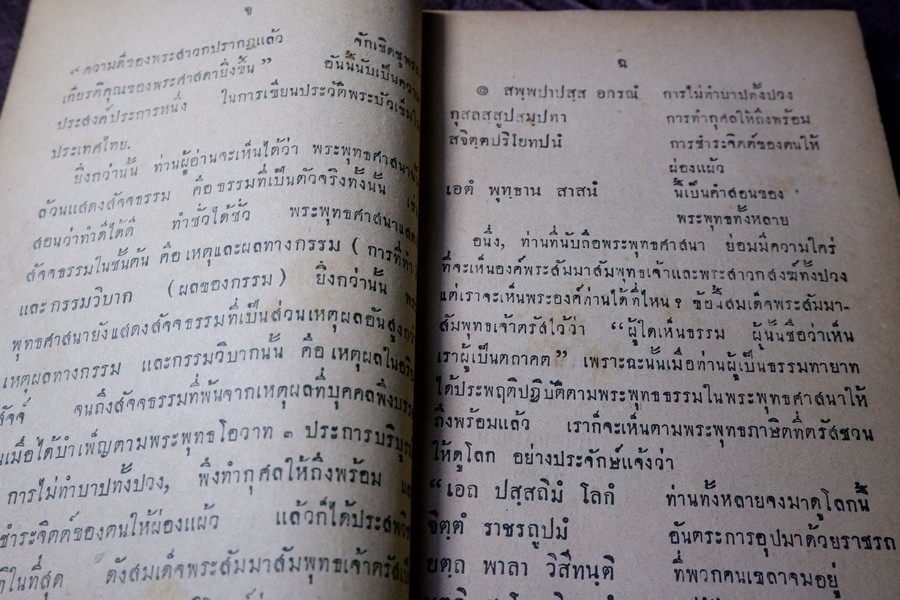 จ
“ ความดีของพระสาวกปรากฏแล้ว จักเชิดชูพระ
เกียรติคุณของพระศาสดายิ่งขึ้น ” อันนี้นับเป็นความ
ประสงค์ประการหนึ่ง ในการเขียนประวัติพระบัวเข็มใน
ประเทศไทย.
ยิ่งกว่านั้น ท่านผู้อ่านจะเห็นได้ว่า พระพุทธศาสนานั้น
ล้วนแสดงสัจจธรรม คือธรรมที่เป็นตัวจริงทั้งนั้น เช่น
สอนว่าทำดีได้ดี ทำชั่วได้ชั่ว พระพุทธศาสนาแสดง
สัจจธรรมในชั้นต้น คือเหตุและผลทางกรรม ( การที่ทำ
และกรรมวิบาก (ผลของกรรม) ยิ่งกว่านั้น
พุทธศาสนายังแสดงสัจจธรรมที่เป็นส่วนเหตุผลอันสูงกว่า
เหตุผลทางกรรม และกรรมวิบากนั้น คือ เหตุผลในอริย
สัจจ์ จนถึงสัจจธรรมที่พ้นจากเหตุผลที่บุคคลพึงบรร
เมื่อได้บำเพ็ญตามพระพุทธโอวาท ๓ ประการบริบูรณ์
การไม่ทำบาปทั้งปวง, พึงทำกุศลให้ถึงพร้อม
ชำระจิตต์ของตนให้ผ่องแผ้ว แล้วก็ได้ประสพวิ
ในที่สุด ดังสมเด็จพระสัมมาสัมพุทธเจ้าตรัส
ฉ
๏ สพฺพปาปสฺส อกรณํ การไม่ทำบาปทั้งปวง
กุสลสฺสูปสมฺปทา การทำกุศลให้ถึงพร้อม
สจิตฺตปริโยทปนํ การชำระจิตต์ของตนให้
ผ่องแผ้ว
เอตํ พุทฺธาน สาสนํ นี้เป็นคำสอนของ
พระพุทธทั้งหลาย
อนึ่ง, ท่านที่นับถือพระพุทธศาสนา ย่อมมีความใคร่
ที่จะเห็นองค์พระสัมมาสัมพุทธเจ้าและพระสาวกสงฆ์ทั้งปวง
แต่เราจะเห็นพระองค์ท่านได้ที่ไหน ? ข้อนี้สมเด็จพระสัมมา-
สัมพุทธเจ้าตรัสไว้ว่า “ผู้ใดเห็นธรรม ผู้นั้นชื่อว่าเห็น
เราผู้เป็นตถาคต” เพราะฉะนั้นเมื่อท่านผู้เป็นธรรมทายาท
ได้ประพฤติปฏิบัติตามพระพุทธธรรมในพระพุทธศาสนาให้
ถึงพร้อมแล้ว เราก็จะเห็นตามพระพุทธภาษิตที่ตรัสชวน
ให้ดูโลก อย่างประจักษ์แจ้งว่า
“เอถ ปสฺสถิมํ โลกํ ท่านทั้งหลายจงมาดูโลกนี้
จิตฺตํ ราชรถูปมํ อันตระการอุปมาด้วยราชรถ
ยตฺถ พาลา วิสีทนฺติ ที่พวกคนเขลาจมอยู่